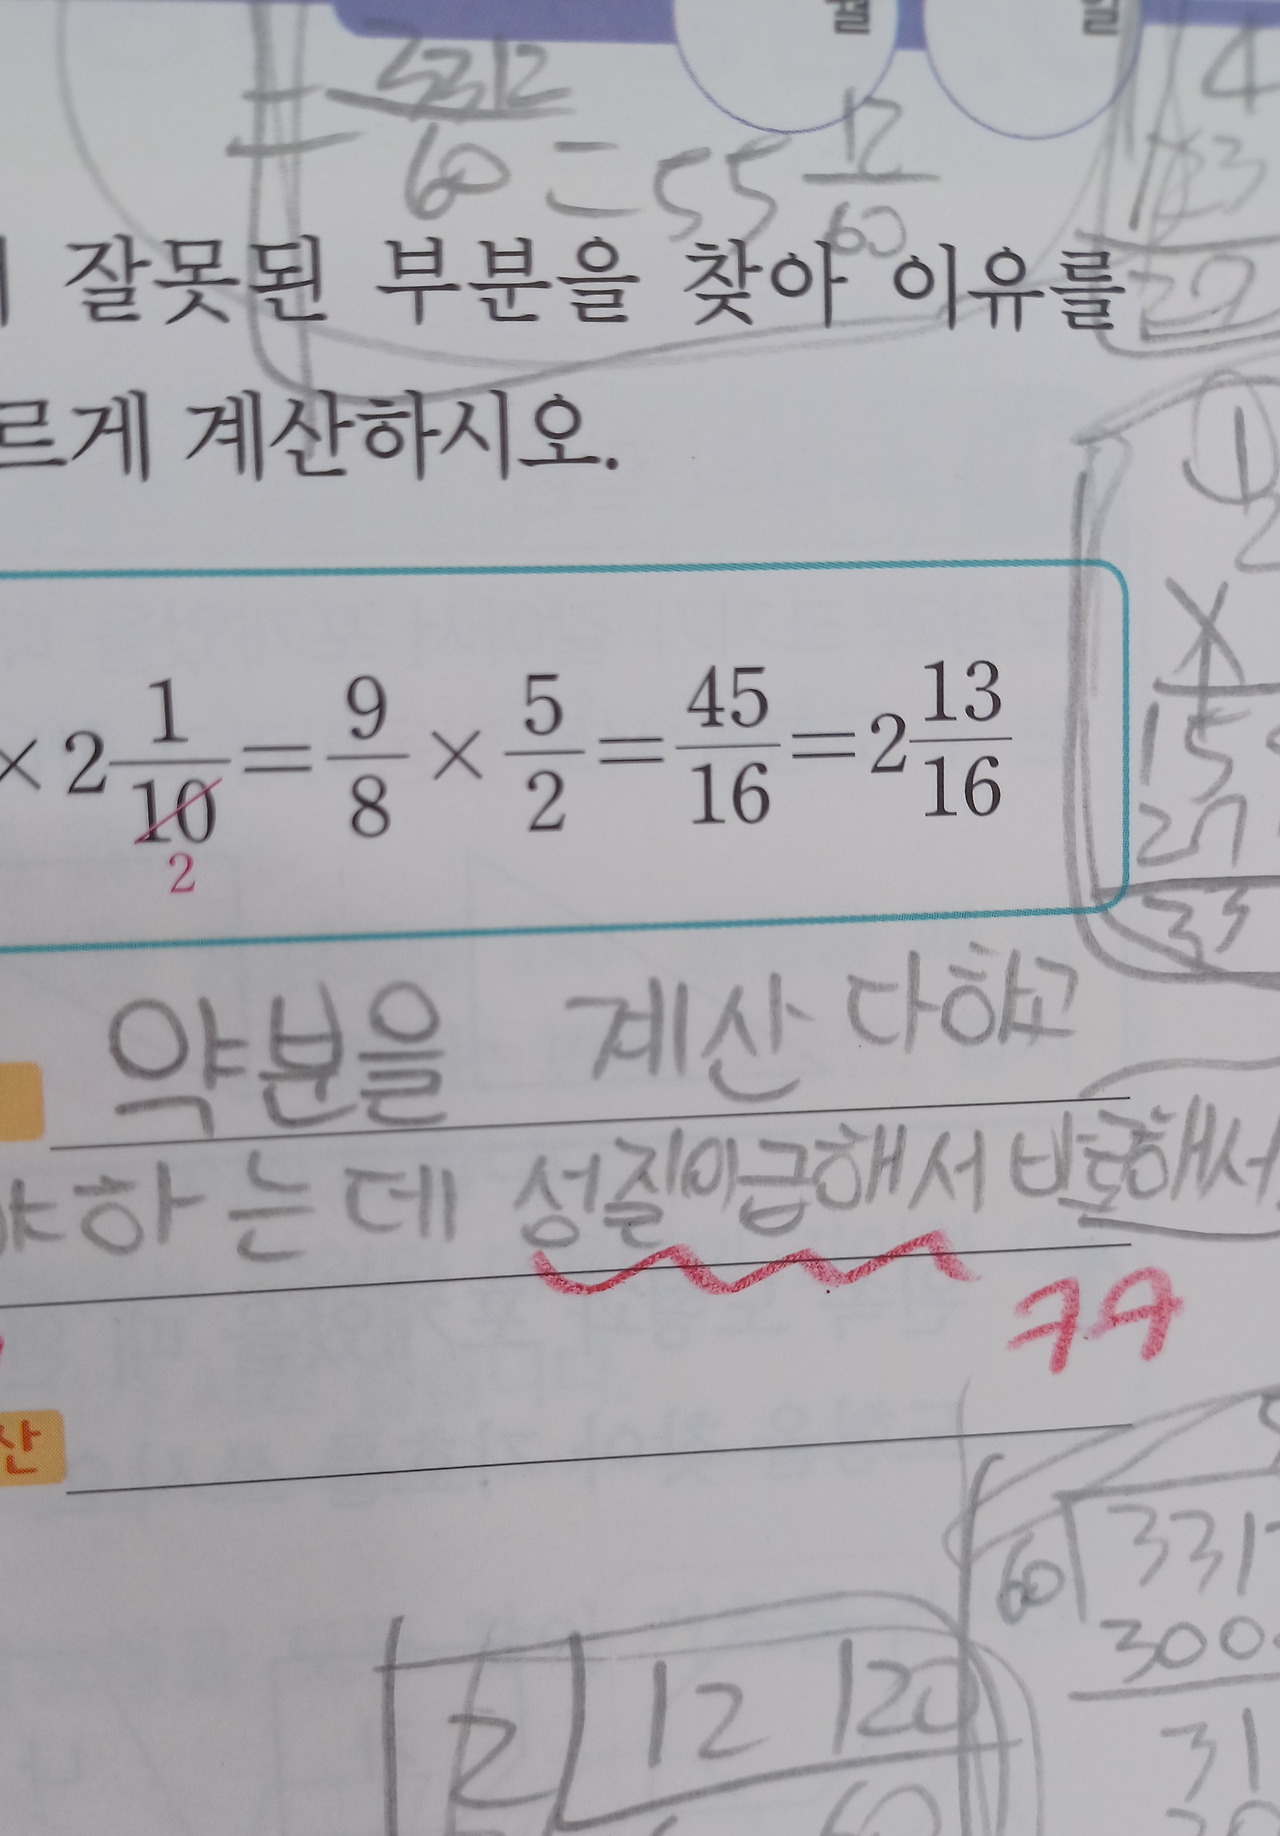 월 일
3312
60 = 55 12/60
잘못된 부분을 찾아 이유를
르게 계산하시오.
× 2 1/10 = 9/8 × 5/2 = 45/16 = 2 13/16
2
약분을 계산 다하고
야하는데 성질이급해서 바로해서
ㅋㅋ
산
60 331
300
31
2 12 120
60